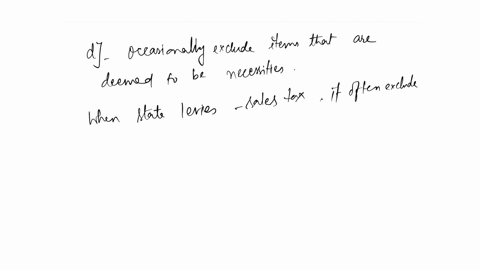 d]- occasionally exclude items that are
deemed to be necessities.
When state levies - sales tax, it often exclude